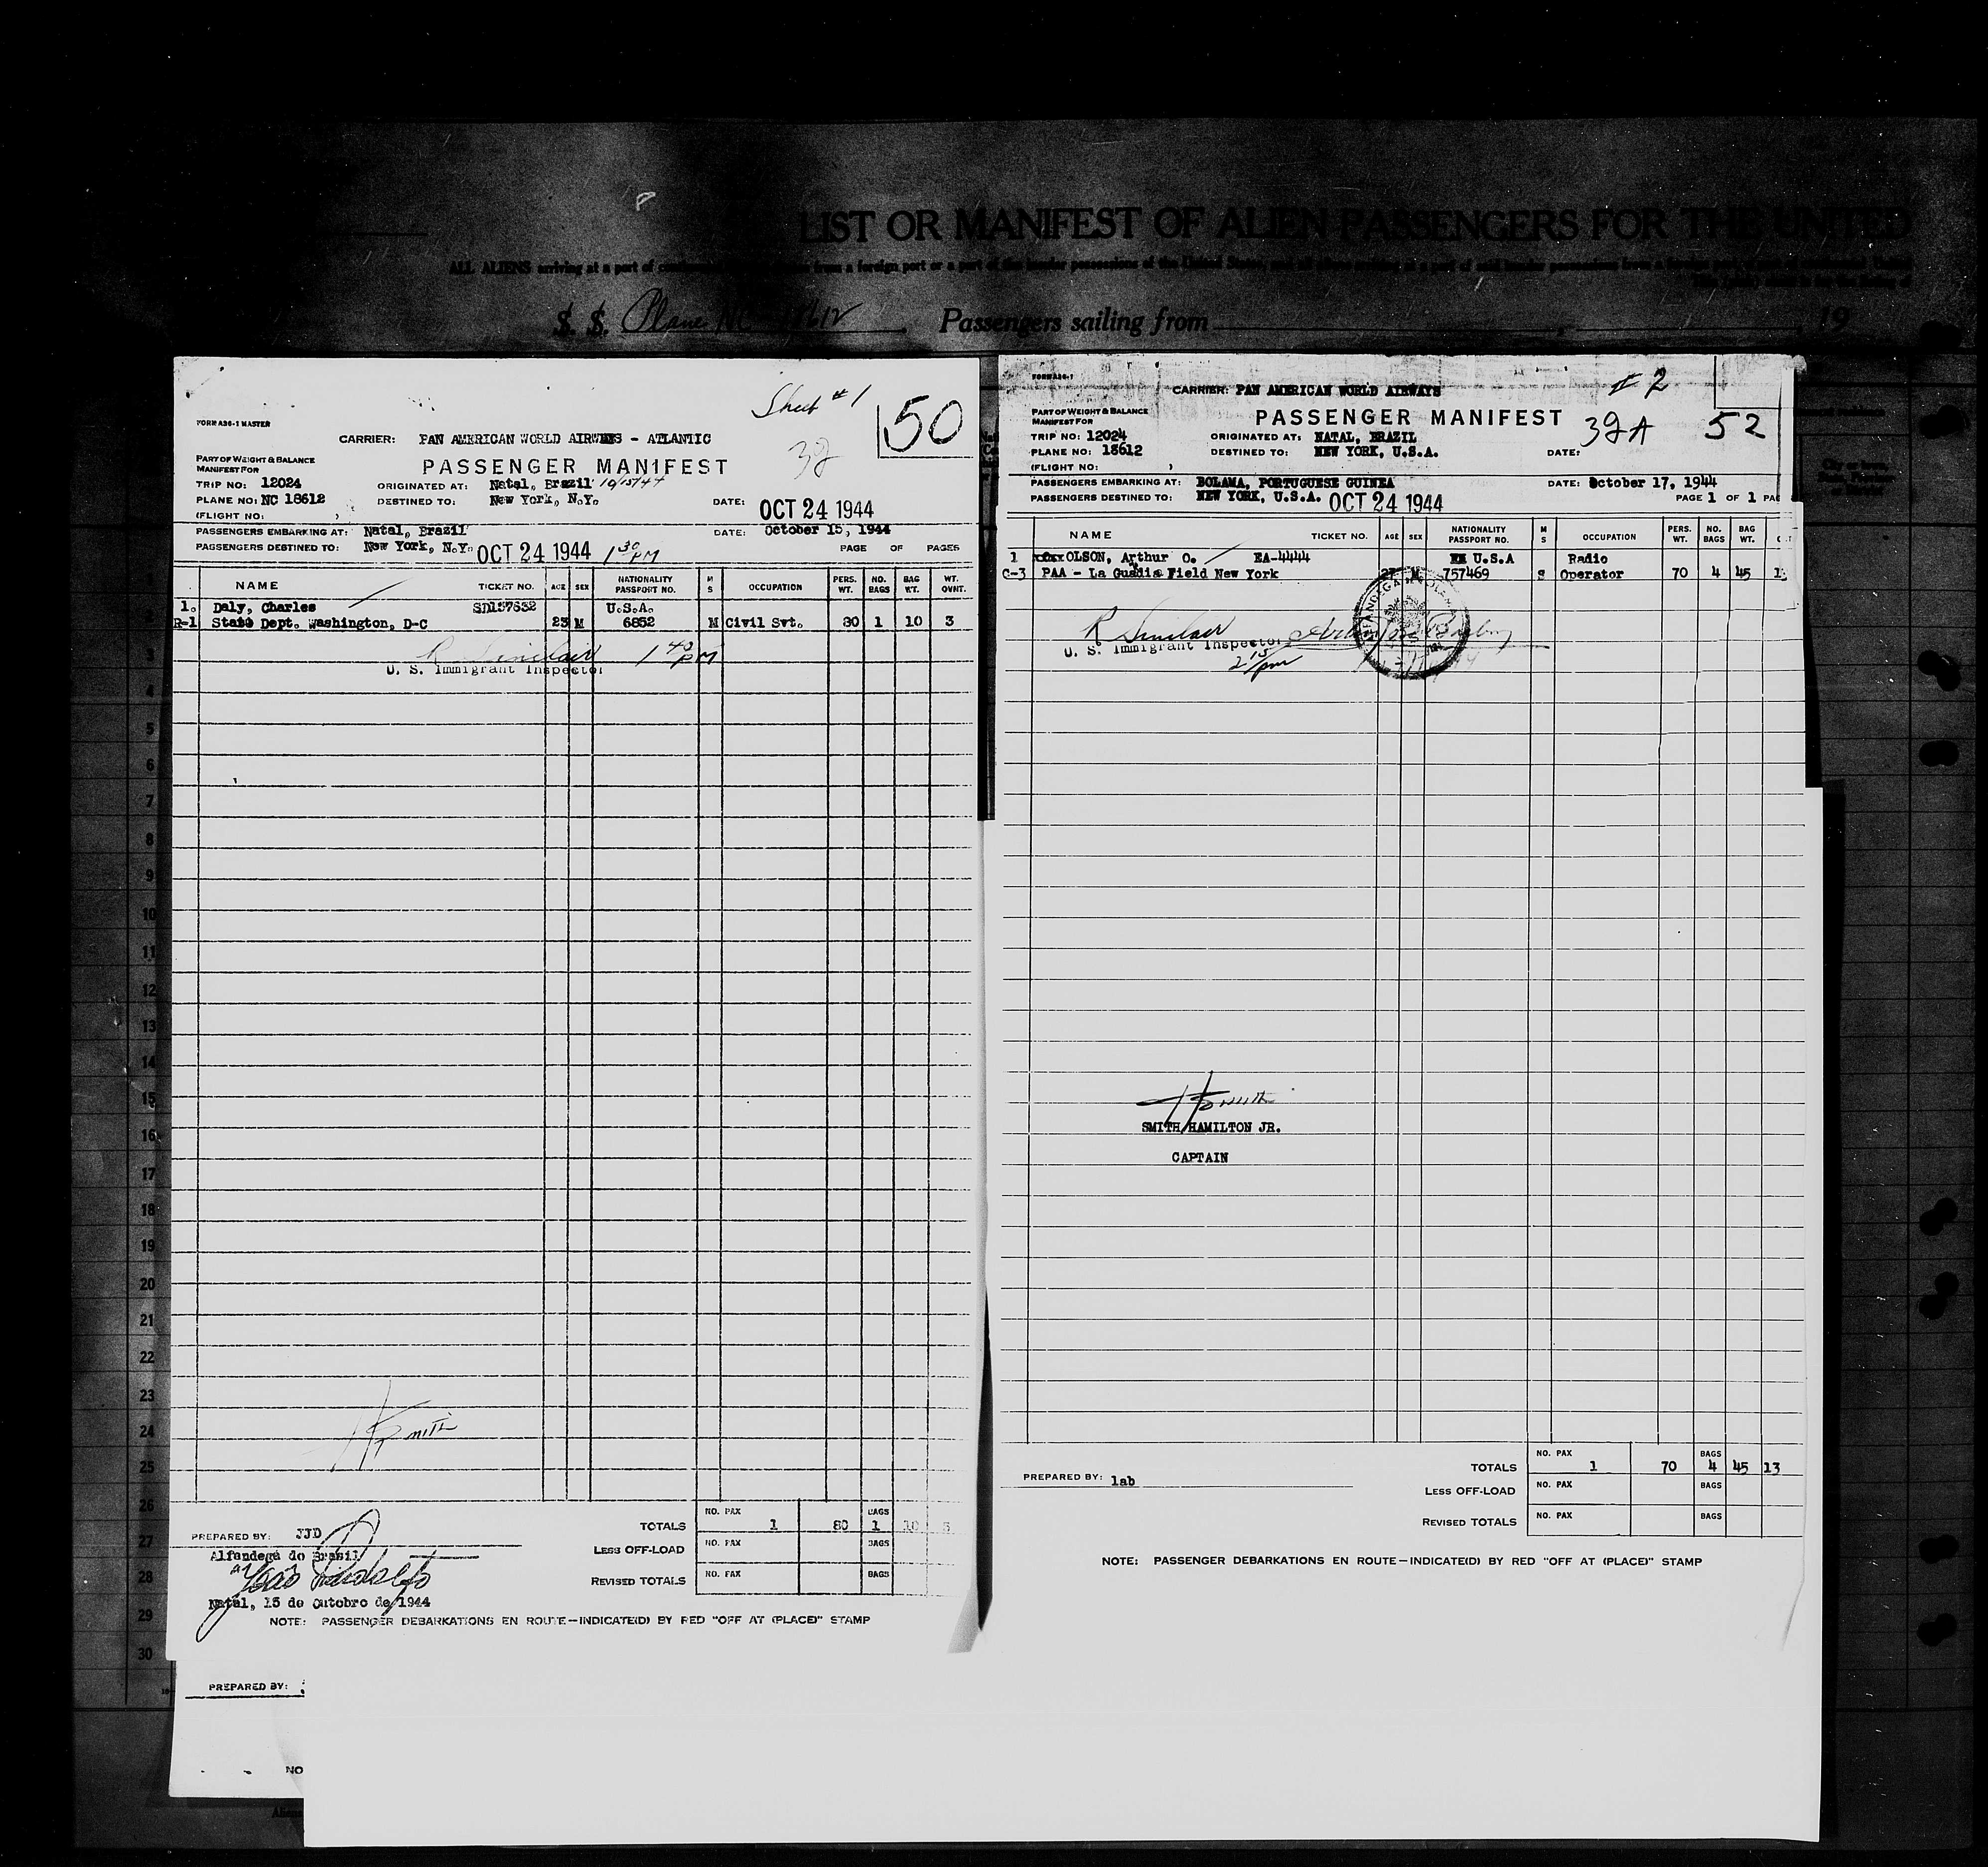 LIST OR MANIFEST OF ALIEN PASSENGERS FOR THE UNITED
ALL ALIENS arriving at a port of
from a foreign port or a port of the insular possessions of the United States
S. S. Plane NC 18612 Passengers sailing from , 19
Sheet #1
50
FORM A36-1 MASTER
CARRIER: PAN AMERICAN WORLD AIRWAYS - ATLANTIC
32
PART OF WEIGHT & BALANCE
MANIFEST FOR
PASSENGER MANIFEST
TRIP NO: 12024
ORIGINATED AT: Natal, Brazil 10/15/44
PLANE NO: NC 18612
DESTINED TO: New York, N.Y.
DATE: OCT 24 1944
(FLIGHT NO: )
PASSENGERS EMBARKING AT: Natal, Brazil
DATE: October 15, 1944
PASSENGERS DESTINED TO: New York, N.Y. OCT 24 1944 1 30 PM
PAGE OF PAGES
NAME TICKET NO. AGE SEX NATIONALITY PASSPORT NO. M S OCCUPATION PERS. WT. NO. BAGS BAG WT. WT. OVHT.
1. Daly, Charles SD157632 U.S.A.
R-1 State Dept. Washington, D-C 23 M 6852 M Civil Svt. 80 1 10 3
R Sinclair 1 40 PM
U. S. Immigrant Inspector
1
2
3
4
5
6
7
8
9
10
11
12
13
14
15
16
17
18
19
20
21
22
23
24
25
26
27
28
29
30
H Smith
NO. PAX BAGS
TOTALS 1 80 1 10
PREPARED BY: JJD
LESS OFF-LOAD NO. PAX BAGS
Alfandega do Brasil
João Rodolfo
REVISED TOTALS NO. PAX BAGS
Natal, 15 de Outubro de 1944
NOTE: PASSENGER DEBARKATIONS EN ROUTE—INDICATE(D) BY RED "OFF AT (PLACE)" STAMP
PREPARED BY:
NO
FORM A36-1
CARRIER: PAN AMERICAN WORLD AIRWAYS
# 2
PART OF WEIGHT & BALANCE
MANIFEST FOR
PASSENGER MANIFEST
32A
52
TRIP NO: 12024
ORIGINATED AT: NATAL, BRAZIL
PLANE NO: 18612
DESTINED TO: NEW YORK, U.S.A.
DATE:
(FLIGHT NO: )
PASSENGERS EMBARKING AT: BOLAMA, PORTUGUESE GUINEA
DATE: October 17, 1944
PASSENGERS DESTINED TO: NEW YORK, U.S.A. OCT 24 1944
PAGE 1 OF 1 PAG
NAME TICKET NO. AGE SEX NATIONALITY PASSPORT NO. M S OCCUPATION PERS. WT. NO. BAGS BAG WT.
1 OLSON, Arthur O. EA-4444 U.S.A Radio
C-3 PAA - La Guadia Field New York M 757469 S Operator 70 4 45
R Sinclair
U. S. Immigrant Inspector
2 15 pm
H Smith
SMITH, HAMILTON JR.
CAPTAIN
NO. PAX BAGS
TOTALS 1 70 4 45 13
PREPARED BY: lab
LESS OFF-LOAD NO. PAX BAGS
REVISED TOTALS NO. PAX BAGS
NOTE: PASSENGER DEBARKATIONS EN ROUTE—INDICATE(D) BY RED "OFF AT (PLACE)" STAMP